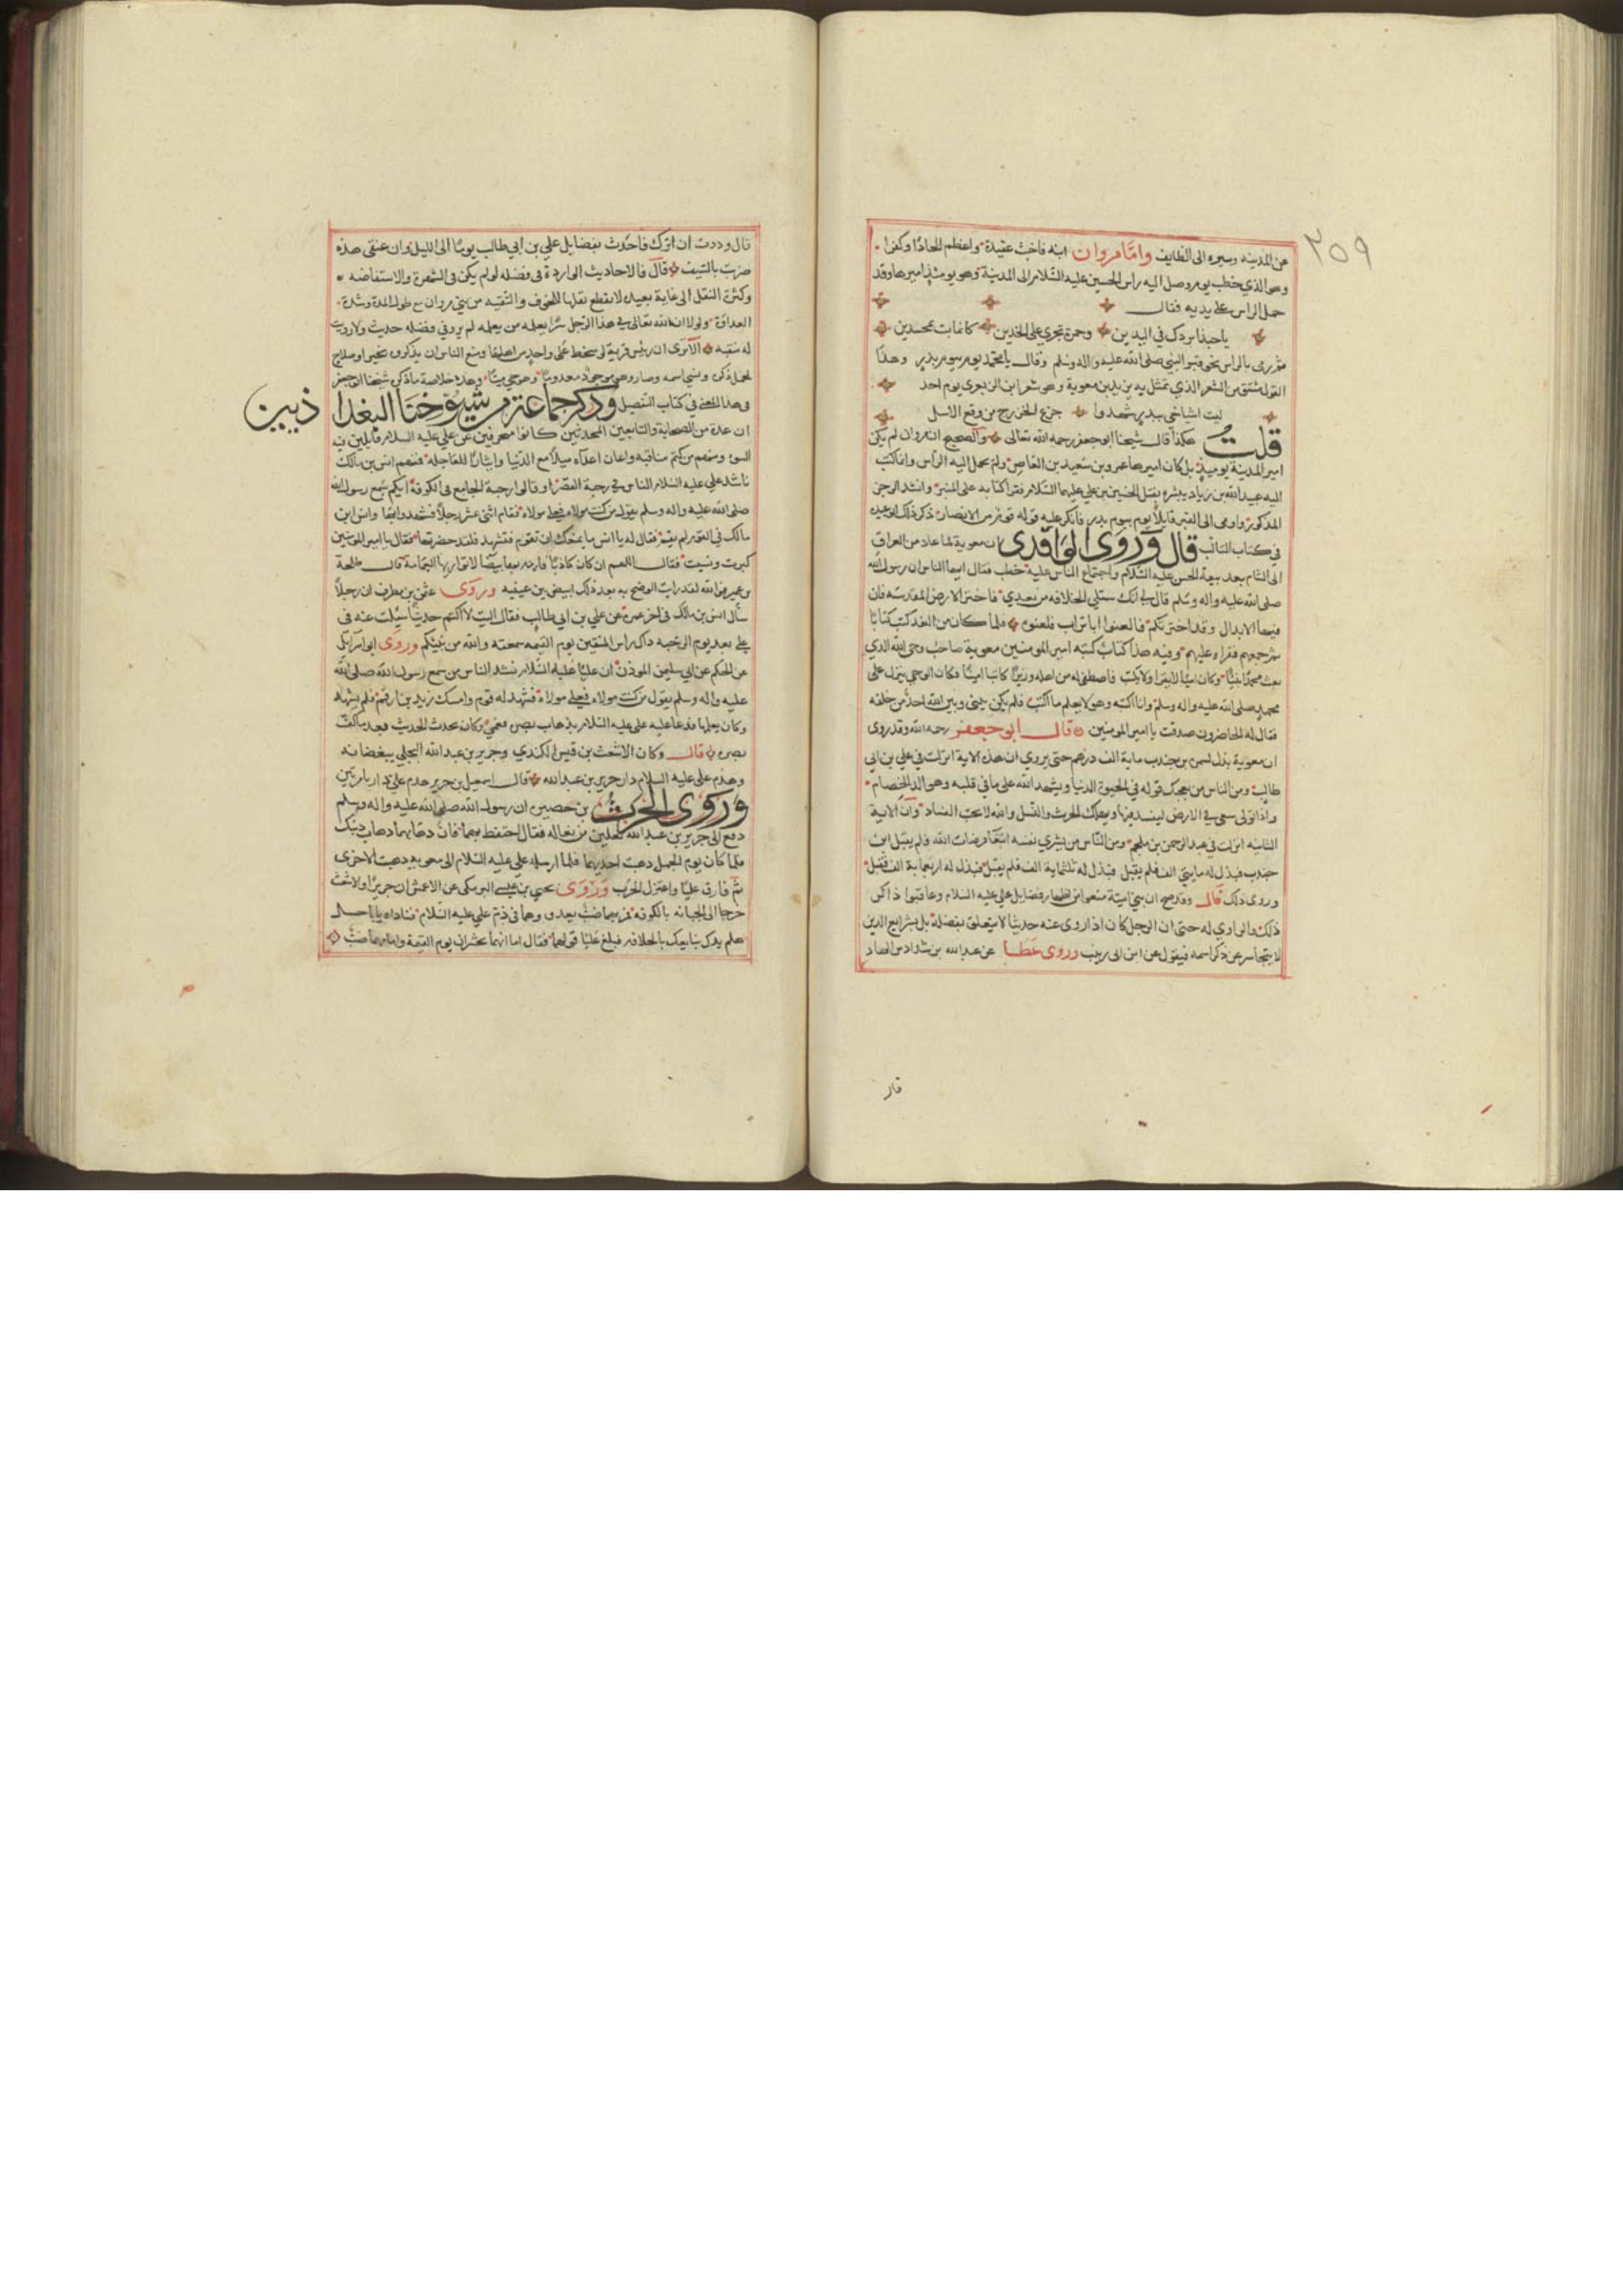 ٢٥٩
عن المدينه وسيره الى الطايف وامّا مروان ابنه فاخبث عقيدة واعظم الحادًا وكفرا
وهو الذي خطب يوم وصل اليه راس الحسين عليه السّلام الى المدينة وهو يومئذٍ اميرها وقد
حمل الراس على يديه فقال
ياحبذا بردك في اليدين وحمرة تجري على الخدين كانما بت بمحسدين
ثم رمى بالراس نحو قبر النبي صلى الله عليه واله وسلم وقال يا محمد يوم بيوم بدرٍ وهذا
القول مشتق من الشعر الذي تمثل به يزيد بن معوية وهو شعر ابن الزبعرى يوم احد
ليت اشياخي ببدرٍ شهدوا جزع الخزرج من وقع الاسل
قلت هكذا قال شيخنا ابو جعفر رحمه الله تعالى والصحيح ان مروان لم يكن
امير المدينة يوميذٍ بل كان اميرها عمرو بن سعيد بن العاص ولم يحمل اليه الراس وانما كتب
اليه عبيد الله بن زياد يبشره بقتل الحسين بن علي عليهما السّلام فقرا كتابه على المنبر وانشد الرجز
المذكور واومى الى القبر قايلًا يوم بيوم بدر فانكر عليه قوله قوم من الانصار ذكر ذلك ابو عبيده
في كتاب المثالب قال وروى الواقدى ان معوية لما عاد من العراق
الى الشام بعد بيعة الحسن عليه السّلام واجتماع الناس عليه خطب فقال ايها الناس ان رسول الله
صلى الله عليه واله وسلم قال لي انك ستلي الخلافه من بعدي فاختر الارض المقدسه فان
فيها الابدال وقد اخترتكم فالعنوا ابا تراب فلعنوه فلما كان من الغد كتب كتابًا
ثم جمعهم فقراه عليهم وفيه هذا كتابٌ كتبه امير المومنين معوية صاحب وحي الله الذي
بعث محمدًا نبيًّا وكان اميًّا لا يقرا ولا يكتب فاصطفى له من اهله وزيرًا كاتبًا امينًا فكان الوحي ينزل على
محمدٍ صلى الله عليه واله وسلم وانا اكتبه وهو لا يعلم ما اكتب فلم يكن بيني وبين الله احدٌ من خلقه
فقال له الحاضرون صدقت يا امير المومنين قال ابو جعفر رحمه الله وقد روى
ان معوية بذل لسمرة بن جندب ماية الف درهم حتى يروي ان هذه الاية انزلت في علي بن ابى
طالب ومن الناس من يعجبك قوله في الحيوة الدنيا ويشهد الله على ما في قلبه وهو الد الخصام
واذا تولى سعى في الارض ليفسد فيها ويهلك الحرث والنسل والله لا يحب الفساد وان الاية
الثانيه انزلت في عبد الرحمن بن ملجم ومن النّاس من يشري نفسه ابتغا مرضات الله فلم يقبل ابن
جندب فبذل له مايتى الف فلم يقبل فبذل له ثلثماية الف فلم يقبل فبذل له اربعماية الف فقبل
وروى ذلك قال وقد صح ان بني اميّة منعوا من اظهار فضايل علي عليه السلام وعاقبوا ذاكر
ذلك والراوي له حتى ان الرجل كان اذا روى عنه حديثًا لا يتعلق بفضله بل بشرايع الدين
لا يتجاسر عن ذكر اسمه فيقول عن ابى زينب وروى عطا عن عبد الله بن شداد بن الهاد
قال
قال وددت ان اترك فاحدث بفضايل علي بن ابي طالب يومًا الى الليل وان عنقى هذه
ضربت بالسّيف قال فالاحاديث الواردة في فضله لو لم يكن في الشهرة والاستفاضه
وكثرة النقل الى غاية بعيده لانقطع نقلها للخوف والتقيه من بني مروان مع طول المدة وشدة
العداوة ولولا ان الله تعالى في هذا الرّجل سرًّا يعلمه من يعلمه لم يرو في فضله حديث ولا رويت
له منقبه الا ترى ان ريس قرية لو سخط على واحدٍ من اهلها ومنع الناس ان يذكروه بخيرٍ او صلاح
لخمل ذكره ونسي اسمه وصار وهو موجودٌ معدومًا وهو حي ميتًا وهذه خلاصة ما ذكره شيخنا ابو جعفر
في هذا المعنى في كتاب التفضيل وذكر جماعة من شيوخنا البغدا ذيين
ان عدة من الصحابة والتابعين المحدثين كانوا منحرفين عن علي عليه السلام قايلين فيه
السوء ومنهم من كتم مناقبه واعان اعداه ميلًا مع الدّنيا وايثارًا للعاجله فمنهم انس بن مالك
ناشد علي عليه السلام الناس في رحبة القصر او قالوا رحبة الجامع في الكوفة ايكم سمع رسول الله
صلى الله عليه واله وسلم يقول من كنت مولاه فعلي مولاه فقام اثنى عشر رجلًا فشهدوا بها وانس ابن
مالك في القوم لم يقم فقال له يا انس ما يمنعك ان تقوم فتشهد فلقد حضرتها فقال يا امير المومنين
كبرت ونسيت فقال اللهم ان كان كاذبًا فارمه بها بيضًا لا تواريها العمامة قال طلحة
بن عمير فوالله لقد رايت الوضح به بعد ذلك ابيض بين عينيه وروى عثمن بن مطرف ان رجلًا
سال انس بن مالك في اخر عمره عن علي بن ابي طالب فقال اليت لا اكتم حديثًا سيلت عنه فى
على بعد يوم الرحبه ذاك راس المتقين يوم القيمه سمعته والله من نبيكم وروى ابو اسرايل
عن الحكم عن ابي سليمن الموذن ان عليًّا عليه السّلام نشد الناس من سمع رسول الله صلى الله
عليه واله وسلم يقول من كنت مولاه فعلي مولاه فشهد له قوم وامسك زيد بن ارقم فلم يشهد
وكان يعلمها فدعا عليه على عليه السّلام بذهاب بصره فعمي وكان يحدث الحديث بعد ما كف
بصره قال وكان الاشعث بن قيس الكندي وجرير بن عبد الله البجلي يبغضانه
وهدم على عليه السلام دار جرير بن عبد الله قال اسمعيل بن جرير هدم علي دارنا مرتين
وروى الحرث بن حصين ان رسول الله صلى الله عليه واله وسلم
دفع الى جرير بن عبد الله نعلين من نعاله فقال احتفظ بهما فان ذهابهما ذهاب دينك
فلما كان يوم الجمل ذهبت احديهما فلما ارسله علي عليه السلام الى معويه ذهبت الاخرى
ثم فارق عليًّا واعتزل الحرب وروى يحيي بن عيسى البرمكى عن الاعمش ان جريرًا والاشعث
خرجا الى الجبانه بالكوفه فمر بهما ضب يعدو وهما في ذم علي عليه السّلام فناداه يا ابا حسل
هلم يدك نبايعك بالخلافه فبلغ عليًّا قولهما فقال اما انهما يحشران يوم القيمة وامامهما ضبٌّ